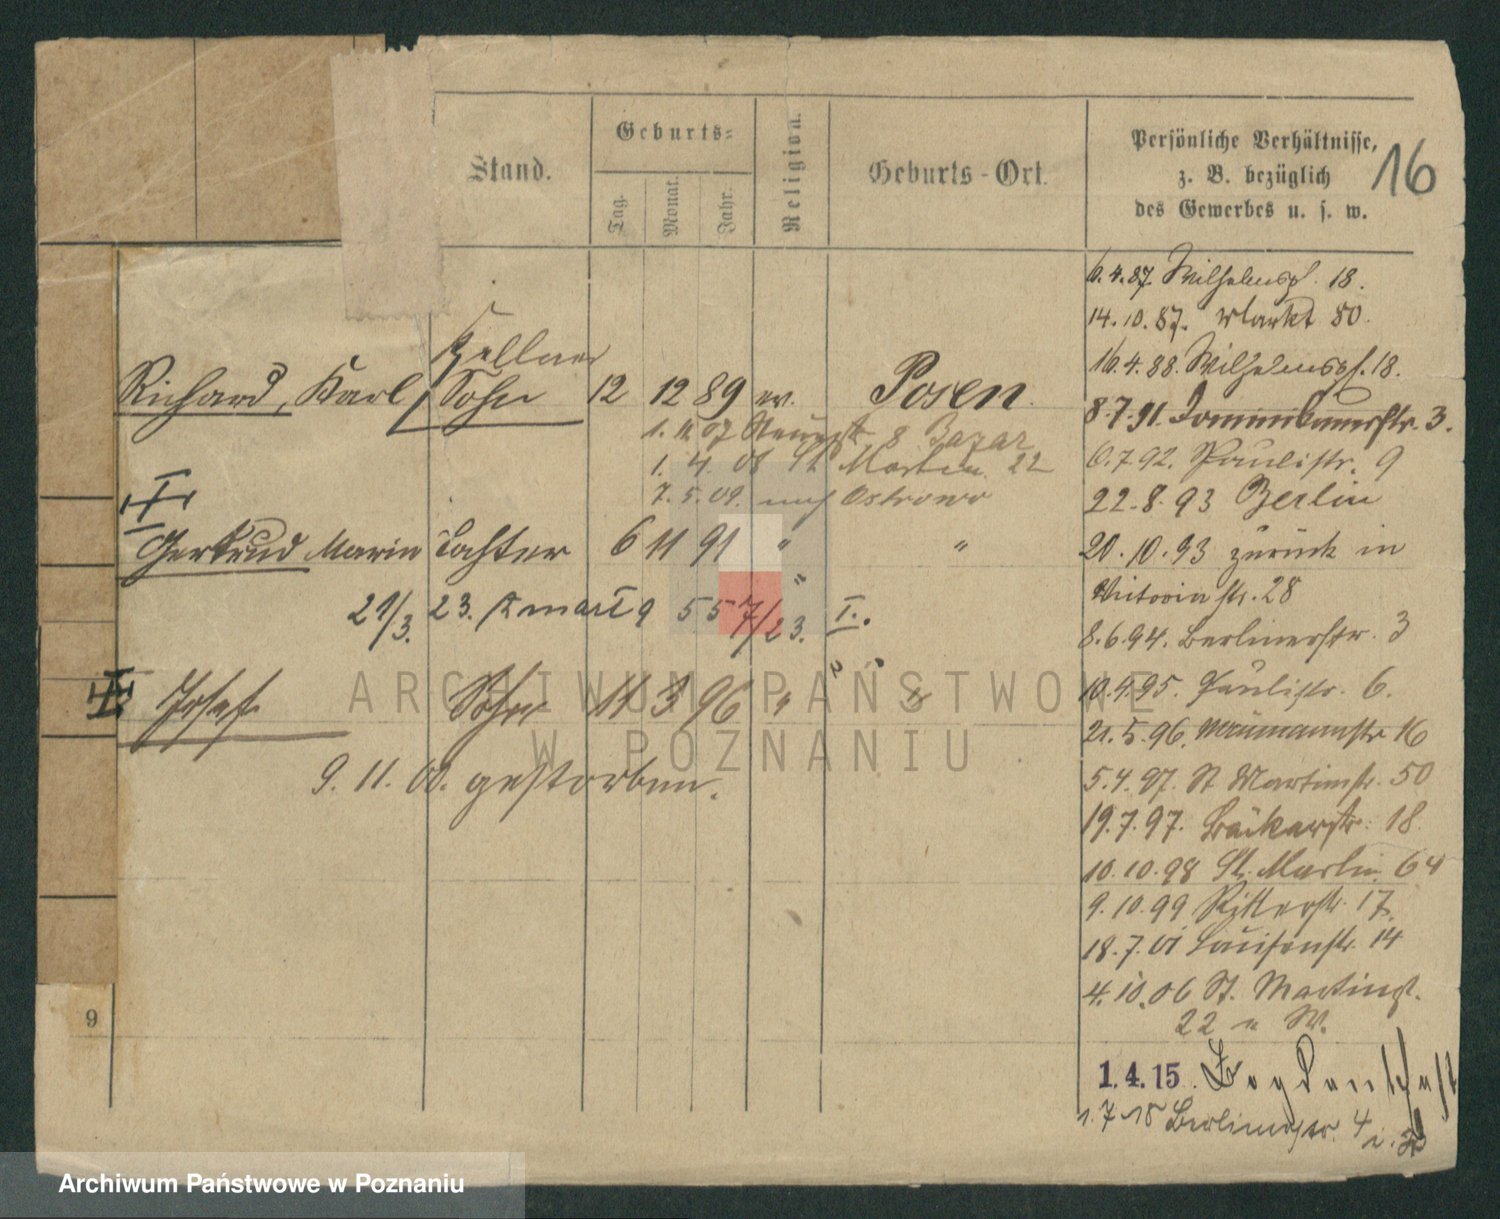 Stand.
Geburts-
Tag.
Monat.
Jahr.
Religion.
Geburts-Ort.
Persönliche Verhältnisse,
z. B. bezüglich
des Gewerbes u. s. w.
16
Kellner
Richard, Karl, Sohn 12 12 89 ev. Posen
1. 11. 07 8 Bazar
1. 4. 08 St Martin 22
7. 5. 09. nach Ostrowo
I
Gertrud Maria Tochter 6 11 91 " "
21/3. 23. 9 55 7/23. I.
Josef Sohn 11 3 96 "
9. 11. 00. gestorben.
9
6.4.87. Wilhelmspl. 18.
14.10.87. Markt 80.
16.4.88. Wilhelmspl. 18.
8.7.91. Dominikanerstr. 3.
6.7.92. Paulistr. 9
22.8.93 Berlin
20.10.93 zurück in
Victoriastr. 28
8.6.94. Berlinerstr. 3
10.4.95. Paulistr. 6.
21.5.96. Naumannstr 16
5.4.97. St Martinstr. 50
19.7.97. Bäckerstr. 18
10.10.98 St. Martin 64
9.10.99 Ritterstr. 17.
18.7.01 Louisenstr. 14
4.10.06 St. Martinst.
22 W.
1.4.15.
1.7.18 Berlinerstr. 4
ARCHIWUM PAŃSTWOWE
W POZNANIU
Archiwum Państwowe w Poznaniu